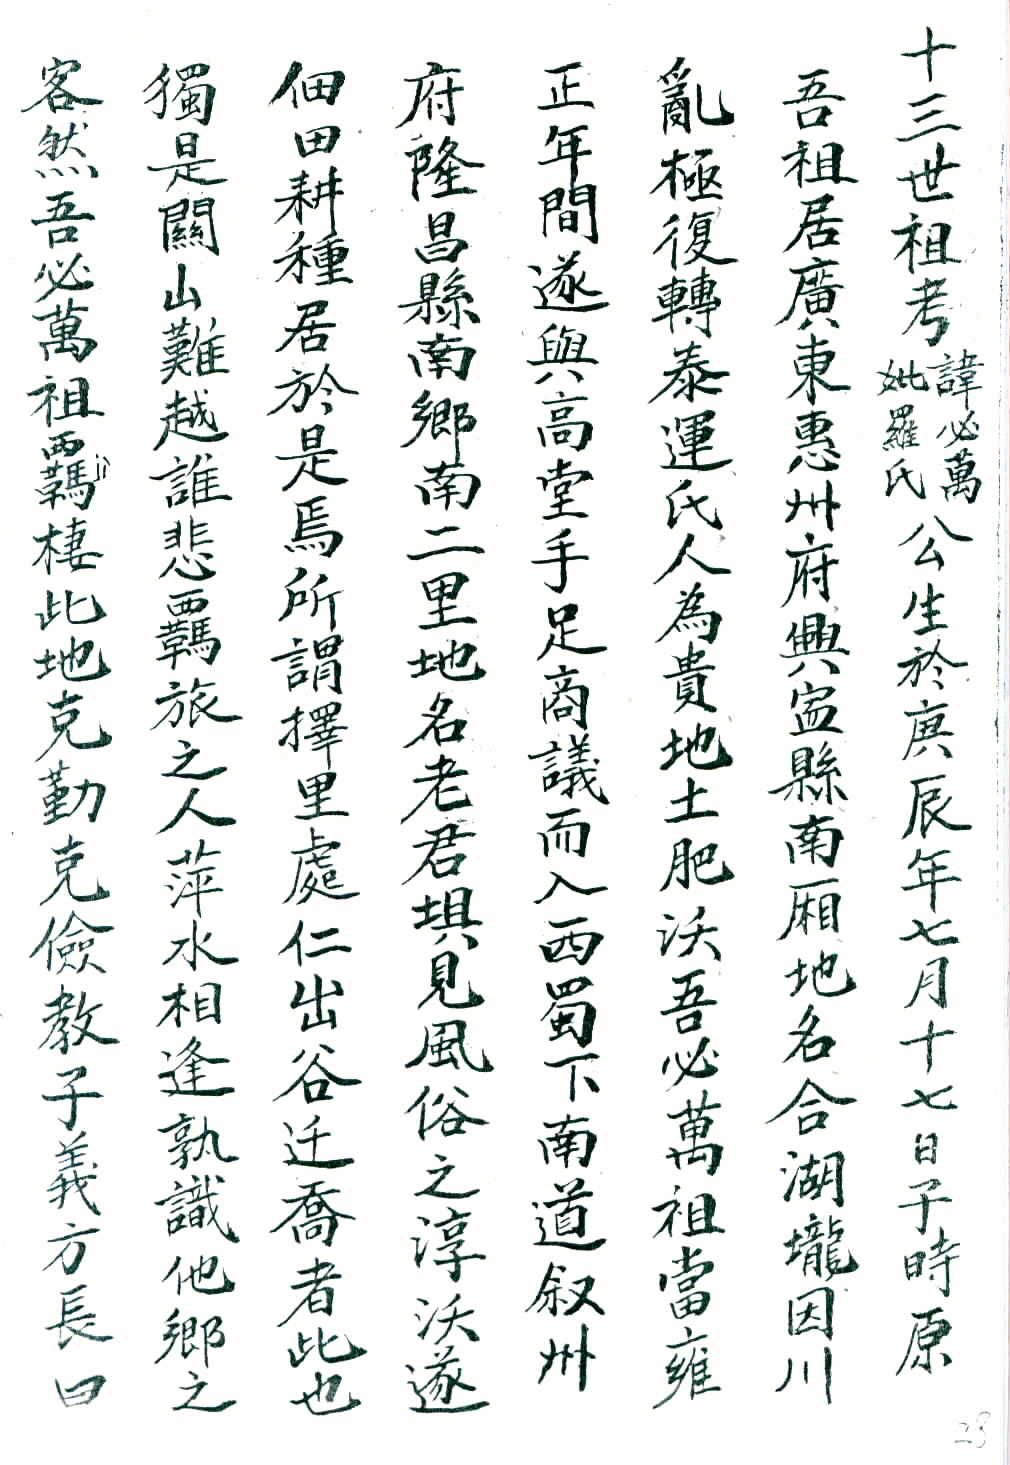 十三世祖考諱必萬妣羅氏公生於庚辰年七月十七日子時原
吾祖居廣東惠州府興寍縣南厢地名合湖壠因川
亂極復轉泰運氏人為貴地土肥沃吾必萬祖當雍
正年間遂與高堂手足商議而入西蜀下南道叙州
府隆昌縣南鄉南二里地名老君埧見風俗之淳沃遂
佃田耕種居於是焉所謂擇里處仁出谷迁喬者此也
獨是關山難越誰悲覊旅之人萍水相逢孰識他鄉之
客然吾必萬祖覊棲此地克勤克儉教子義方長曰
ji
23